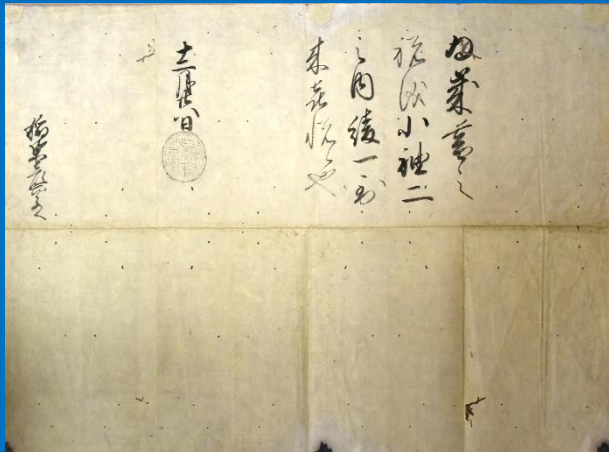 為歳暮之
祝儀小袖二
之内綾一到
来喜悦候也
十二月廿八日
稲葉